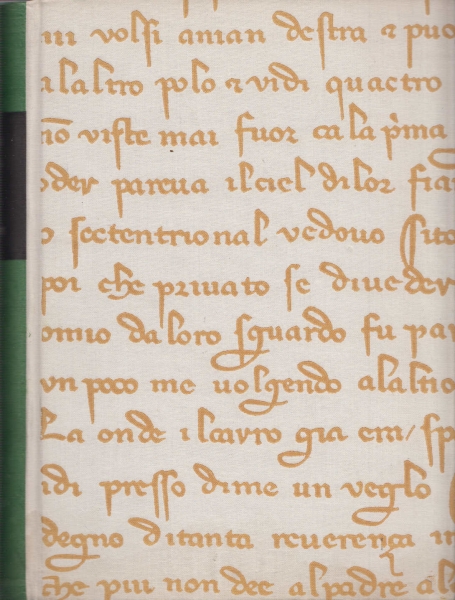 m volsi aman destra ⁊ puo
alaltro polo ⁊ vidi quactro
nō viste mai fuor ca la p̄ma
oder pareua ilciel dilor fia
o sectentrional vedouo sito
poi che priuato se diueder
omio daloro sguardo fu par
vn poco me uolgendo alaltro
La onde ilcarro gia era/ sp
idi presso dime un veglo
degno ditanta reuerença in
che piu non dee alpadre al